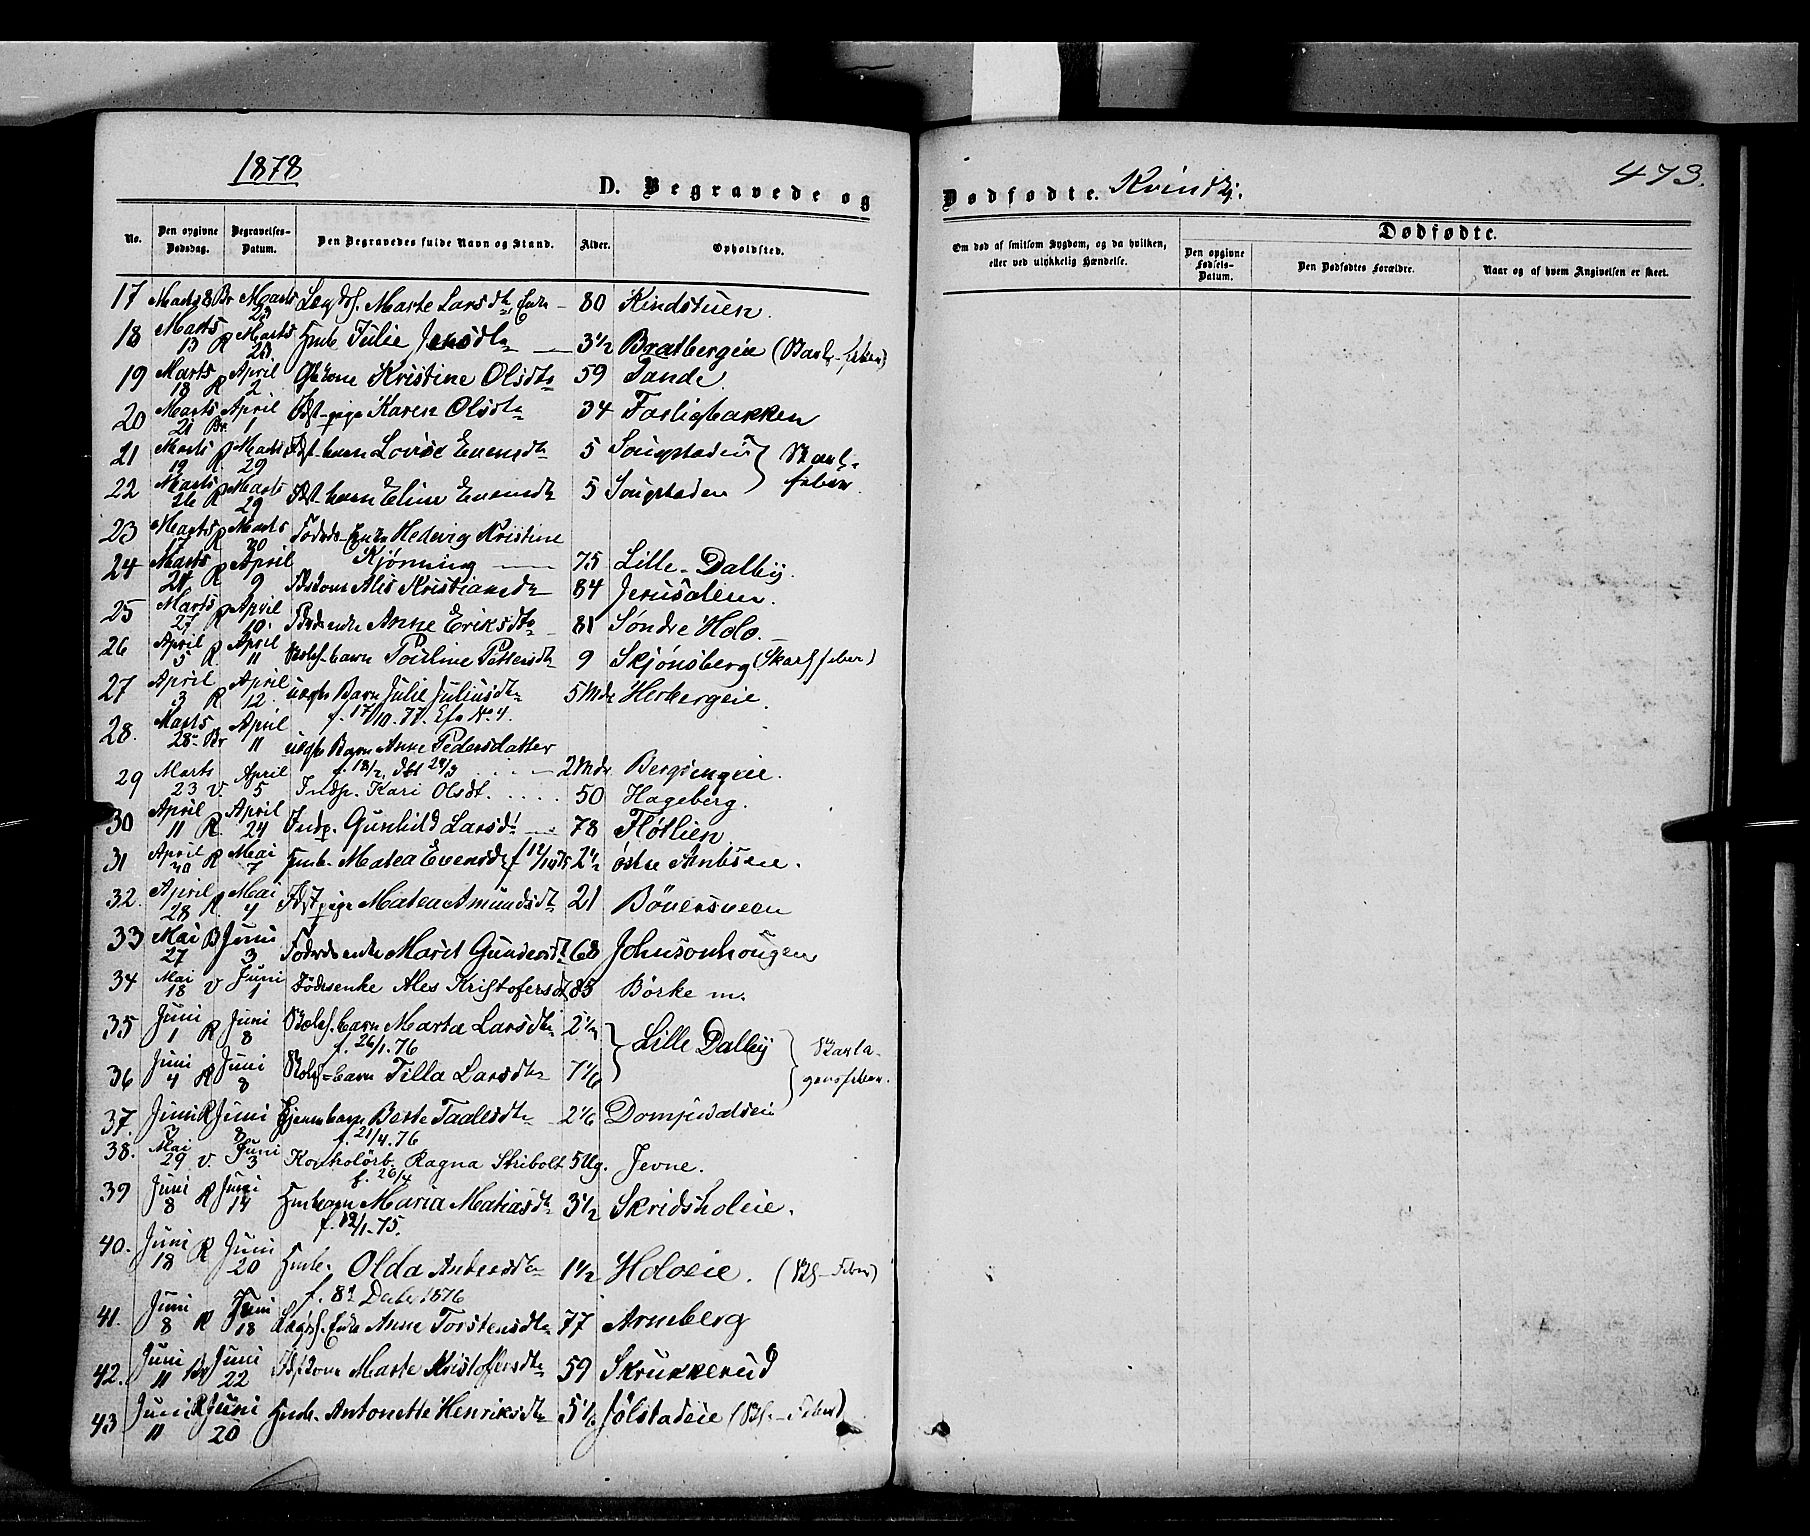 1878
D. Begravede og
Dødfødte. Kvindkj.
473.
No.
Den opgivne Dødsdag.
Begravelses-Datum.
Den Begravedes fulde Navn og Stand.
Alder.
Opholdsted.
Om død af smitsom Sygdom, og da hvilken, eller ved ulykkelig Hændelse.
Dødfødte.
Den opgivne Fødsels-Datum.
Den Dødfødtes Forældre.
Naar og af hvem Angivelsen er skeet.
17 Marts 8 Br Marts Marte Larsdtr Enke 80 Kindstuen.
18 Marts 13 R Marts Hmb. Julie Jensdtr 3 1/2 Bratbergeie (Skarl-feber)
19 Marts 18 R April 2 Kristine Olsdtr 59 Tande.
20 Marts 21 Br. April 1 pige Karen Olsdtr 34 Farligbakken
21 Marts 19 R Marts 29 barn Lovise Evensdtr 5 Sougstadeie Skarl-
22 Marts 26 R Marts 29 barn Eline Evensdtr 5 Sougstadeie feber
23 Marts 17 R Marts Hedevig Kristine
Kjønning 75 Lille-Dalby.
24 Marts R April 9 Alis Kristiansdtr 84 Jerusalem.
25 Marts 27 R April 10. Anne Eriksdtr 81 Søndre Holo.
26 April 5 R. April 11 barn Pouline Pettersdtr 9 Skjønsberg (Skarl feber)
27 April 3 R April 12. uegte Barn Julie Juliusdtr 5 Mdr Herbergeie.
f. 17/10.77. Efs No. 4.
28. Marts 28 Br April 11 uegte Barn Anne Pedersdatter
f. 18/2, dbt 24/3 2 Mdr Bergsengeie.
29 Marts 23 V. April 5 Indp. Kari Olsdt. 50 Hageberg.
30 April 11 R April 24 Indp. Gunhild Larsdt 78 Fløtlien
31 April 30 R Mai 7 Hmb. Matea Evensdtr 2 1/2 østre
32. April 28 R. Mai 4 pige Matea Amundsdtr 21 Bøversveen
33 Mai 27 B Juni 3 Føderådsenke Marit Gundersdtr 68 Johnsonhougen
34 Mai 18 V Juni 1 Fødrsenke Ales Kristofersdt 85 Børke m.
35 Juni 1 R Juni 8 barn Marta Larsdtr 2 1/2
f. 26/1.76
Lille Dalby Skarla-
gensfeber.
36 Juni 4 R Juni 8 barn Tilla Larsdtr 7 1/6
37. Juni 3 R Juni 8 barn Berte Taalesdtr 2 1/6
f. 21/4.76
38. Mai 29 V. Juni 3 Kontrolörb. Ragna Skribolt 5 Ug. Jevne.
f. 26/4
39 Juni 8 R Juni 14 Hmbarn Maria Matiasdtr 3 1/2 Skridsholeie.
f. 12/1.75.
40. Juni 18 R Juni 20 Hmb. Olda Andersdtr 1 1/2 Holoeie. (Sk-Feber)
f. 8de Decbr 1876
41. Juni 8 R Juni 18 Enke Anne Torstensdtr 77 Arneberg
42. Juni 11 Br Juni 22 Marte Kristoffersdtr 59 Skrukkerud
43 Juni 11 R Juni 20 Hmb. Antonette Henriksdtr 5 1/6 Jølstadeie (Sk.-Feber)